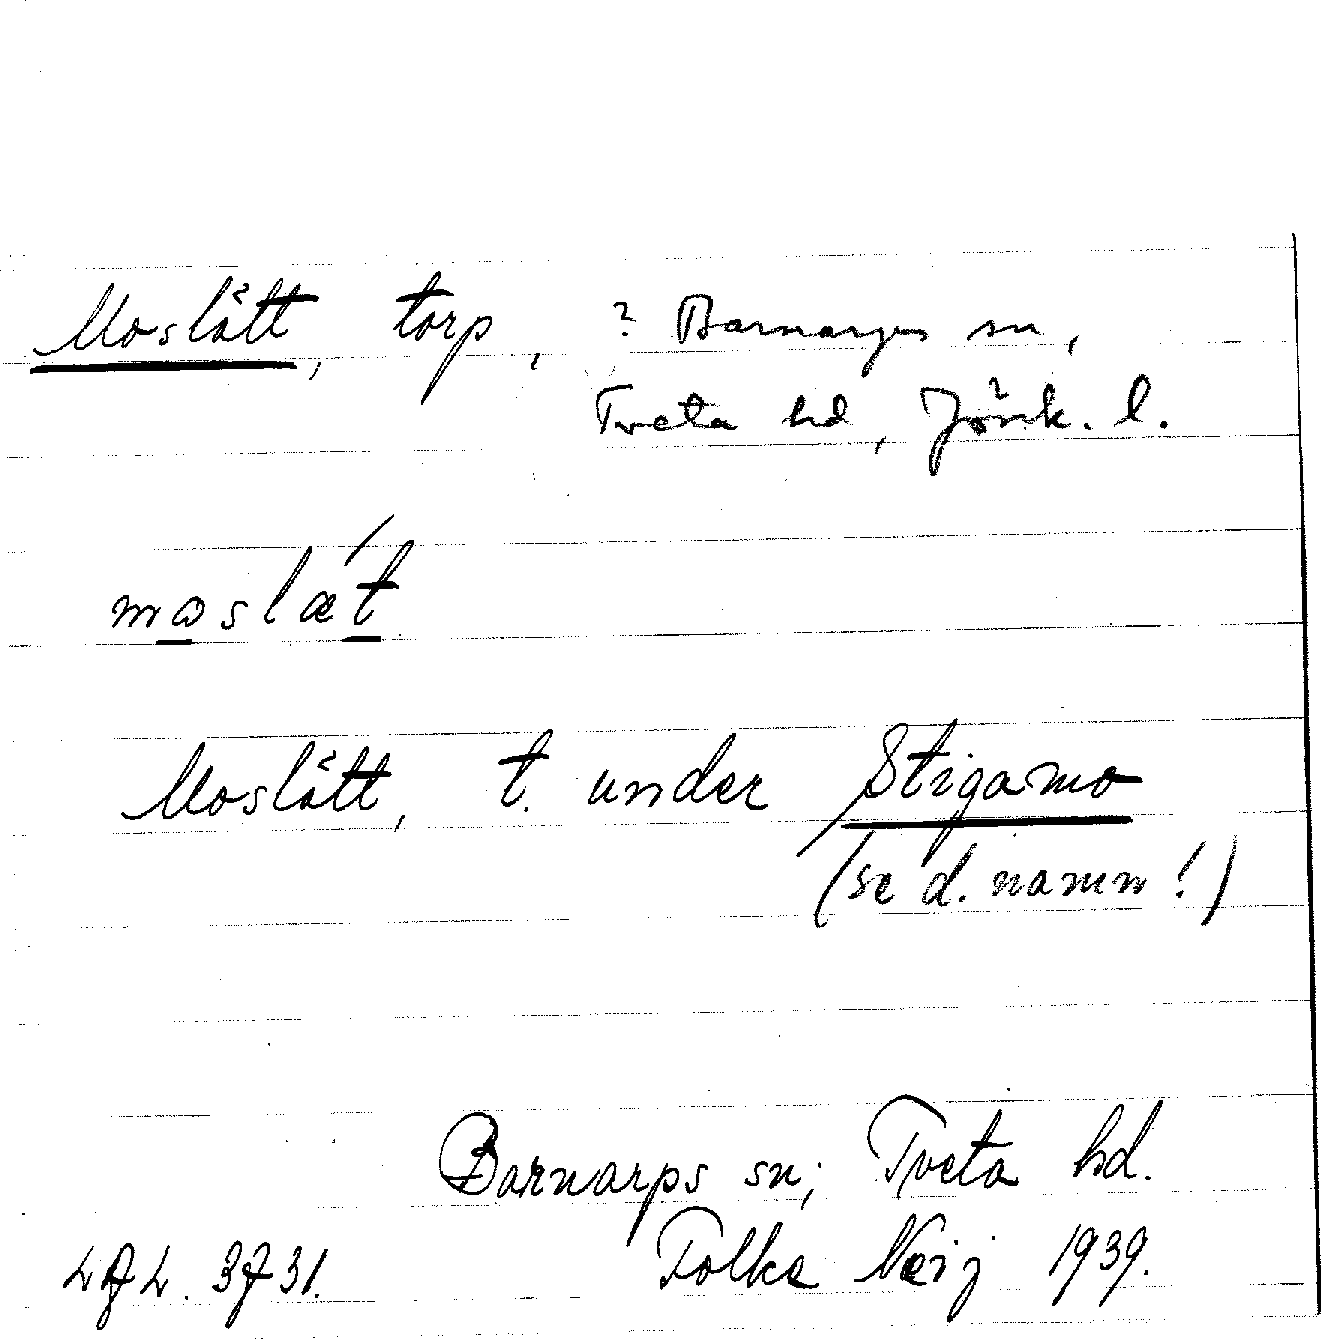 Moslätt, torp, ? Barnarps sn,
Tveta hd, Jönk. l.
moslæt
Moslätt, t. under Stigamo
(se d. namn!)
Barnarps sn; Tveta hd.
Folke Neij 1939.